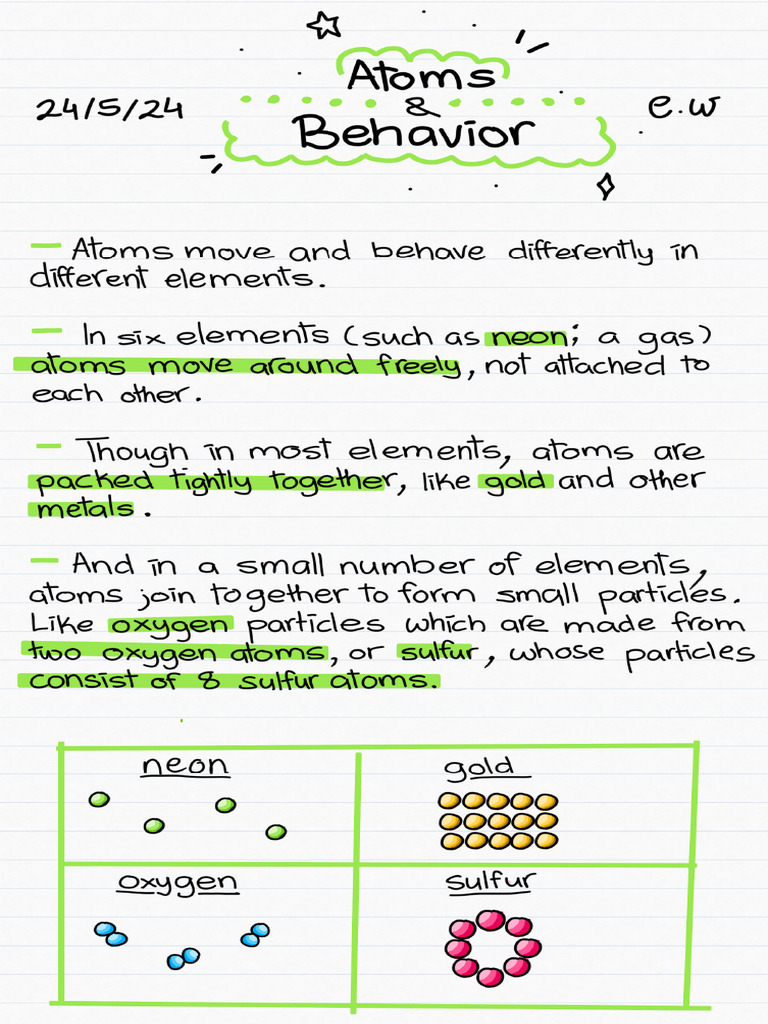 Atoms
24/5/24 & e.w
Behavior
— Atoms move and behave differently in
different elements.
— In six elements (such as neon; a gas)
atoms move around freely, not attached to
each other.
— Though in most elements, atoms are
packed tightly together, like gold and other
metals.
— And in a small number of elements,
atoms join together to form small particles.
Like oxygen particles which are made from
two oxygen atoms, or sulfur, whose particles
consist of 8 sulfur atoms.
neon gold
oxygen sulfur